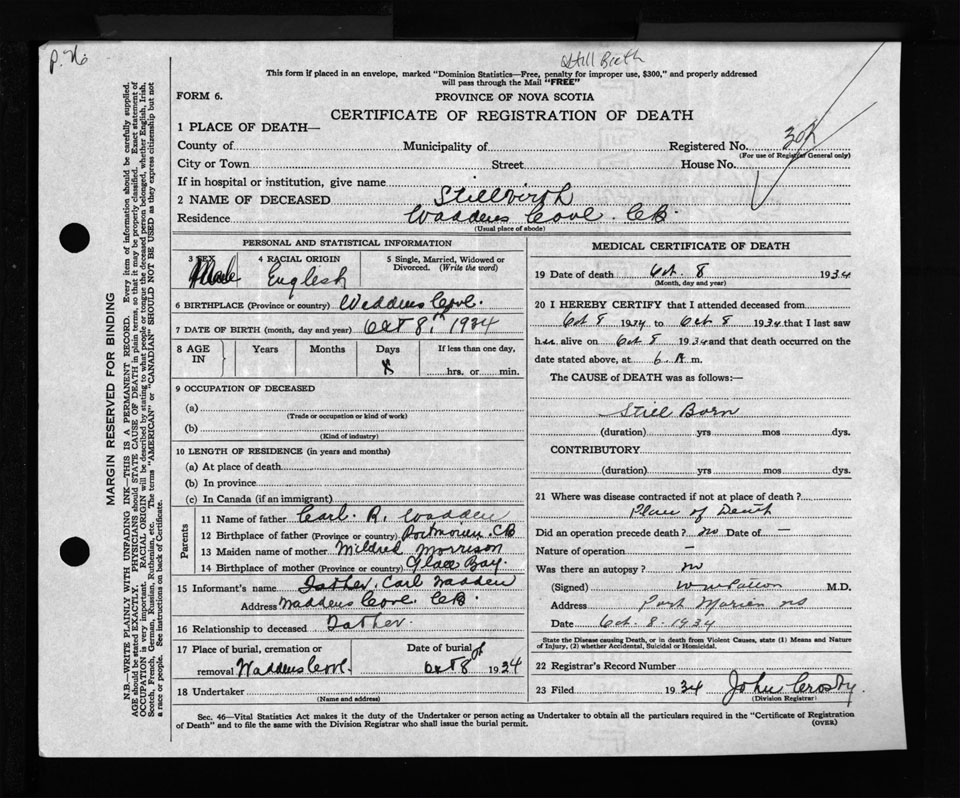 P. 76
Still Birth
This form if placed in an envelope, marked "Dominion Statistics—Free, penalty for improper use, $300," and properly addressed
will pass through the Mail "FREE"
FORM 6.
PROVINCE OF NOVA SCOTIA
CERTIFICATE OF REGISTRATION OF DEATH
1 PLACE OF DEATH—
County of Municipality of Registered No.
(For use of Registrar General only)
City or Town Street House No.
If in hospital or institution, give name
2 NAME OF DECEASED Stillbirth
Residence Waddens Cove. CB.
(Usual place of abode)
PERSONAL AND STATISTICAL INFORMATION
3 SEX Male
4 RACIAL ORIGIN English
5 Single, Married, Widowed or Divorced. (Write the word)
6 BIRTHPLACE (Province or country) Waddens Cove.
7 DATE OF BIRTH (month, day and year) Oct 8th 1934
8 AGE IN Years Months Days If less than one day,
hrs. or min.
9 OCCUPATION OF DECEASED
(a)
(Trade or occupation or kind of work)
(b)
(Kind of industry)
10 LENGTH OF RESIDENCE (in years and months)
(a) At place of death
(b) In province
(c) In Canada (if an immigrant)
Parents
11 Name of father Carl. R. Wadden
12 Birthplace of father (Province or country) Portmorien. CB
13 Maiden name of mother Mildred Morrison
14 Birthplace of mother (Province or country) Glace Bay.
15 Informant's name Father. Carl Wadden
Address Waddens Cove. CB.
16 Relationship to deceased Father.
17 Place of burial, cremation or Date of burial of
removal Waddens Cove. Oct 8 1934
18 Undertaker
(Name and address)
MEDICAL CERTIFICATE OF DEATH
19 Date of death Oct. 8 1934
(Month, day and year)
20 I HEREBY CERTIFY that I attended deceased from
Oct 8 1934 to Oct 8 1934 that I last saw
h alive on Oct 8 1934 and that death occurred on the
date stated above, at 6 A m.
The CAUSE of DEATH was as follows:—
Still Born
(duration) yrs mos dys.
CONTRIBUTORY
(duration) yrs mos dys.
21 Where was disease contracted if not at place of death?
Place of Death
Did an operation precede death? no Date of —
Nature of operation —
Was there an autopsy? no
(Signed) Wm Patton M.D.
Address Port Morien NS
Date Oct. 8. 1934
State the Disease causing Death, or in death from Violent Causes, state (1) Means and Nature
of Injury, (2) whether Accidental, Suicidal or Homicidal.
22 Registrar's Record Number
23 Filed 1934 John Crosby.
(Division Registrar)
Sec. 46—Vital Statistics Act makes it the duty of the Undertaker or person acting as Undertaker to obtain all the particulars required in the "Certificate of Registration
of Death" and to file the same with the Division Registrar who shall issue the burial permit.
(OVER)
MARGIN RESERVED FOR BINDING
N.B.—WRITE PLAINLY WITH UNFADING INK—THIS IS A PERMANENT RECORD. Every item of information should be carefully supplied.
AGE should be stated EXACTLY. PHYSICIANS should STATE CAUSE OF DEATH in plain terms, so that it may be properly classified. Exact statement of
OCCUPATION is very important. RACIAL ORIGIN will be described by stating to what people or tongue the deceased person belonged, whether English, Irish,
Scotch, French, German, Russian, Ruthenian, etc. The terms "AMERICAN" or "CANADIAN" SHOULD NOT BE USED as they express citizenship but not
a race or people. See instructions on back of Certificate.